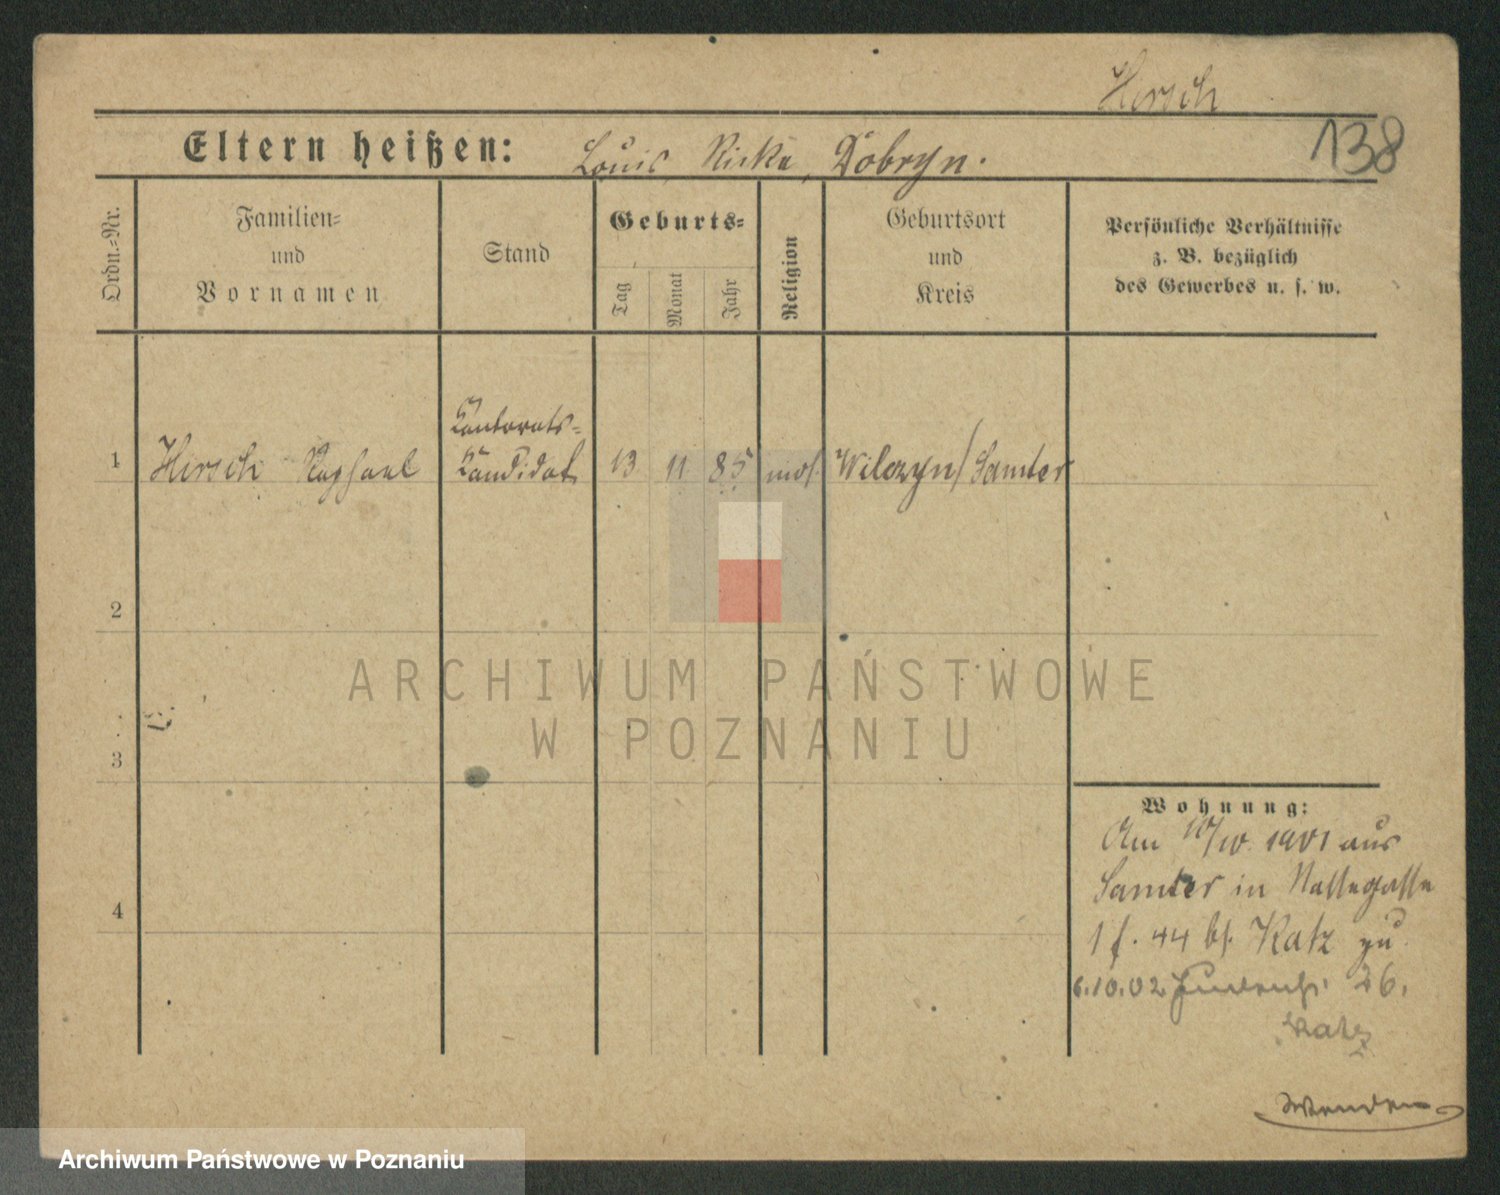 Hirsch
138
Eltern heißen: Louis, Ricka, Dobryn.
Ordn.-Nr.
Familien-
und
Vornamen
Stand
Geburts-
Tag
Monat
Jahr
Religion
Geburtsort
und
Kreis
Persönliche Verhältnisse
z. B. bezüglich
des Gewerbes u. s. w.
Kantorats-
1 Hirsch Raphael Kandidat 13 11 85 mos. Wilczyn/Samter
2
3
4
ARCHIWUM PAŃSTWOWE
W POZNANIU
Wohnung:
Am 10/IV. 1901 aus
Samter in
1 f. 44 bf. Katz zu
6.10.02 26.
Katz
Wenden
Archiwum Państwowe w Poznaniu